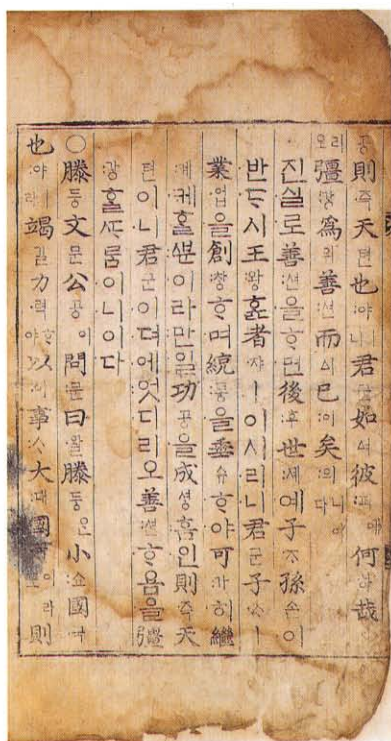 공則즉天텬也야ㅣ니君군如여彼:피애何하哉ᄌᆡ
리오彊:강爲위善:션而ᅀᅵ已:이矣:의니이다
진실로善:션을ᄒᆞ면後:후世:셰예子:ᄌᆞ孫손이
반ᄃᆞ시王왕ᄒᆞᆯ者:쟈ㅣ이시리니君군子:ᄌᆞㅣ
業업을創:창ᄒᆞ며統:통을垂슈ᄒᆞ야可:가히繼
:계케ᄒᆞᆯᄲᅮᆫ이라만일功공을成셩홈인則즉天
텬이니君군이뎌에엇디리오善:션ᄒᆞ욤을彊
:강ᄒᆞᆯᄯᆞᄅᆞᆷ이니이다
○滕등文문公공이問:문曰왈滕등은小:쇼國국
也:야ㅣ라竭갈力력ᄒᆞ야以:이事:ᄉᆞ大:대國이라則